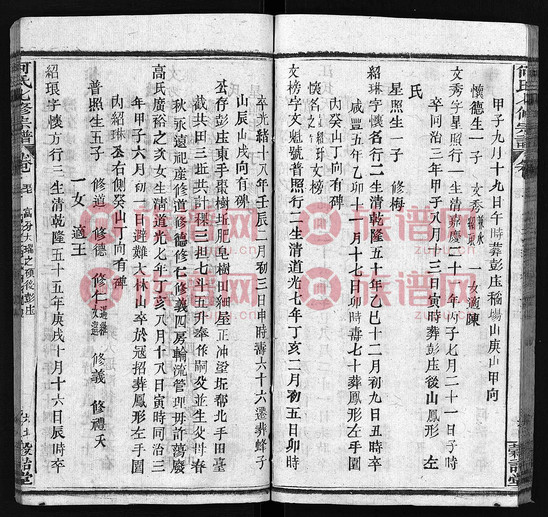 甲子九月十九日午時葬彭庄稻場山庚山甲向
懷德生一子 文秀兼承 一女適陳
文秀字星照行一生清嘉慶二十一年丙子七月二十一日
卒同治三年甲子六月初八日寅時葬彭庄後山鳳形左
氏
星照生一子 修梅
紹琳字懷名行二生清乾隆五十年乙巳十二月初九日丑時
卒咸豐五年乙卯十一月十七日卯時壽七十葬鳳形左手園
內癸山丁向有碑
懷名之子
文榜字文魁號普照行二生清道光七年丁亥二月初五日卯時
卒光緒十八年壬辰二月初三日申時壽六十六葬蜂子
山辰山戌向有碑
公存彭庄東手棗樹坵肥皂樹坵細屋正冲望坵都北手田壹
截共田三坵共計種三担七斗五升奉作嗣父並生父拜春
秋永遠祀產修道修德修仁修義四房輪流管理毋許蕩廢
高氏廣裕之女生清道光七年丁亥八月十二日亥時同治三
年甲子六月初一日避難大林山卒於寇招葬鳳形左手園
內紹琳公右側癸山丁向有碑
普照生五子 修道 修德 修仁 修義 修禮夭
一女適王
紹琅字懷方行三生清乾隆五十五年庚戌十月十六日辰時卒
何氏七修宗譜
高分大端之預後彭庄